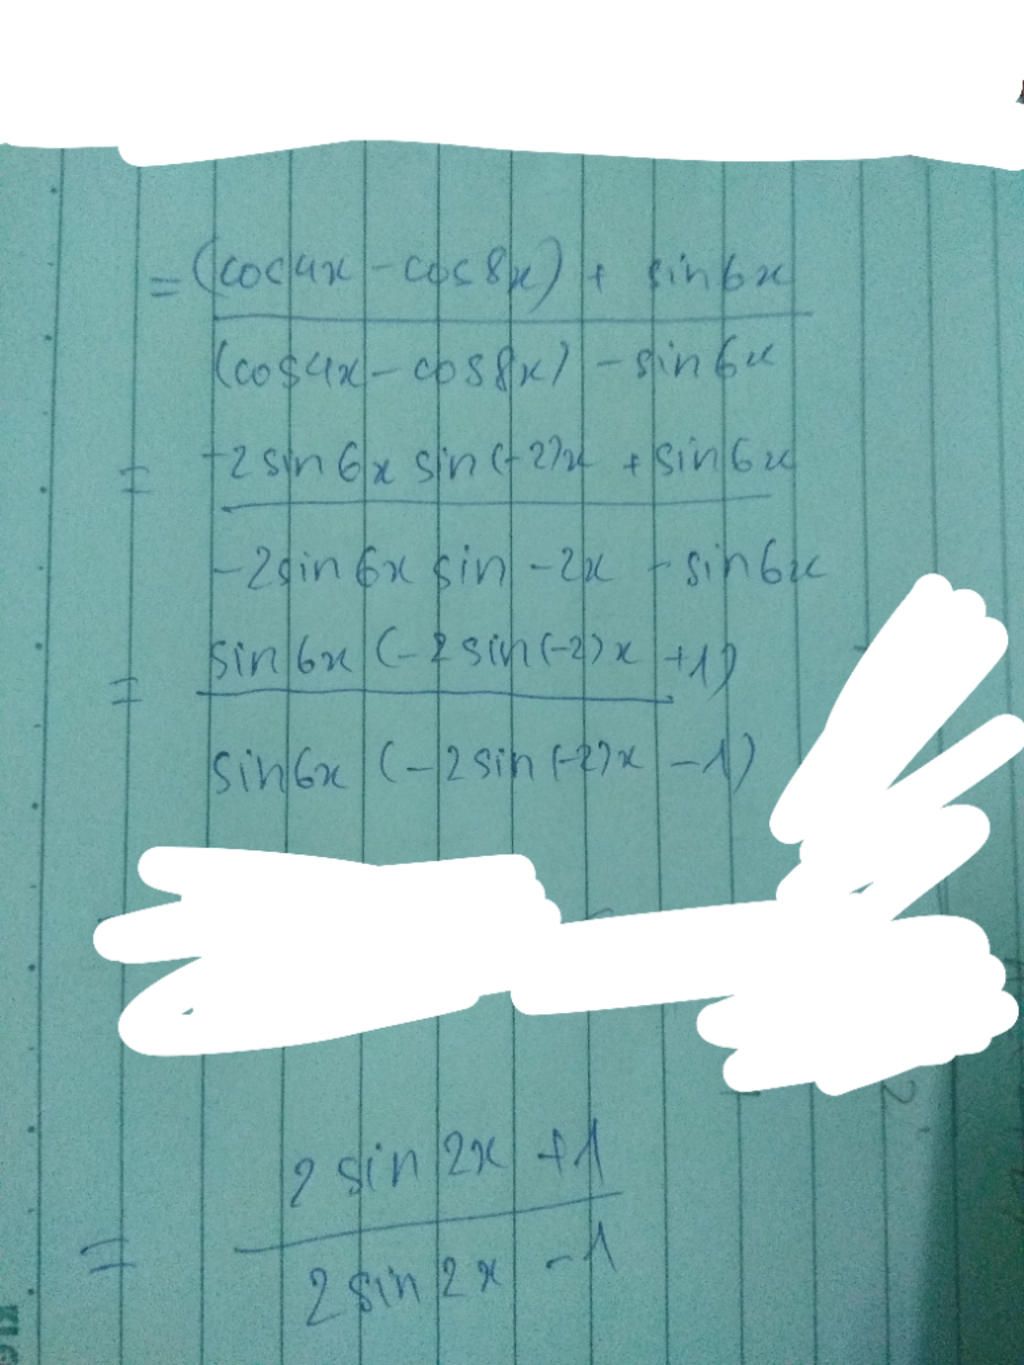 = (cos4x - cos8x) + sin6x
(cos4x - cos8x) - sin6x
= -2sin6x sin(-2)x + sin6x
-2sin6x sin -2x - sin6x
= sin6x (-2sin(-2)x +1)
sin6x (-2sin(-2)x -1)
2 sin 2x +1
=
2 sin 2x -1